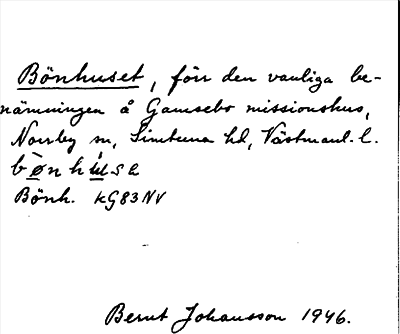 Bönhuset, förr den vanliga be-
nämningen å Gamsebo missionshus,
Norrby sn, Simtuna hd, Västmanl. l.
Bönh. KG83NV
Bernt Johansson 1946.